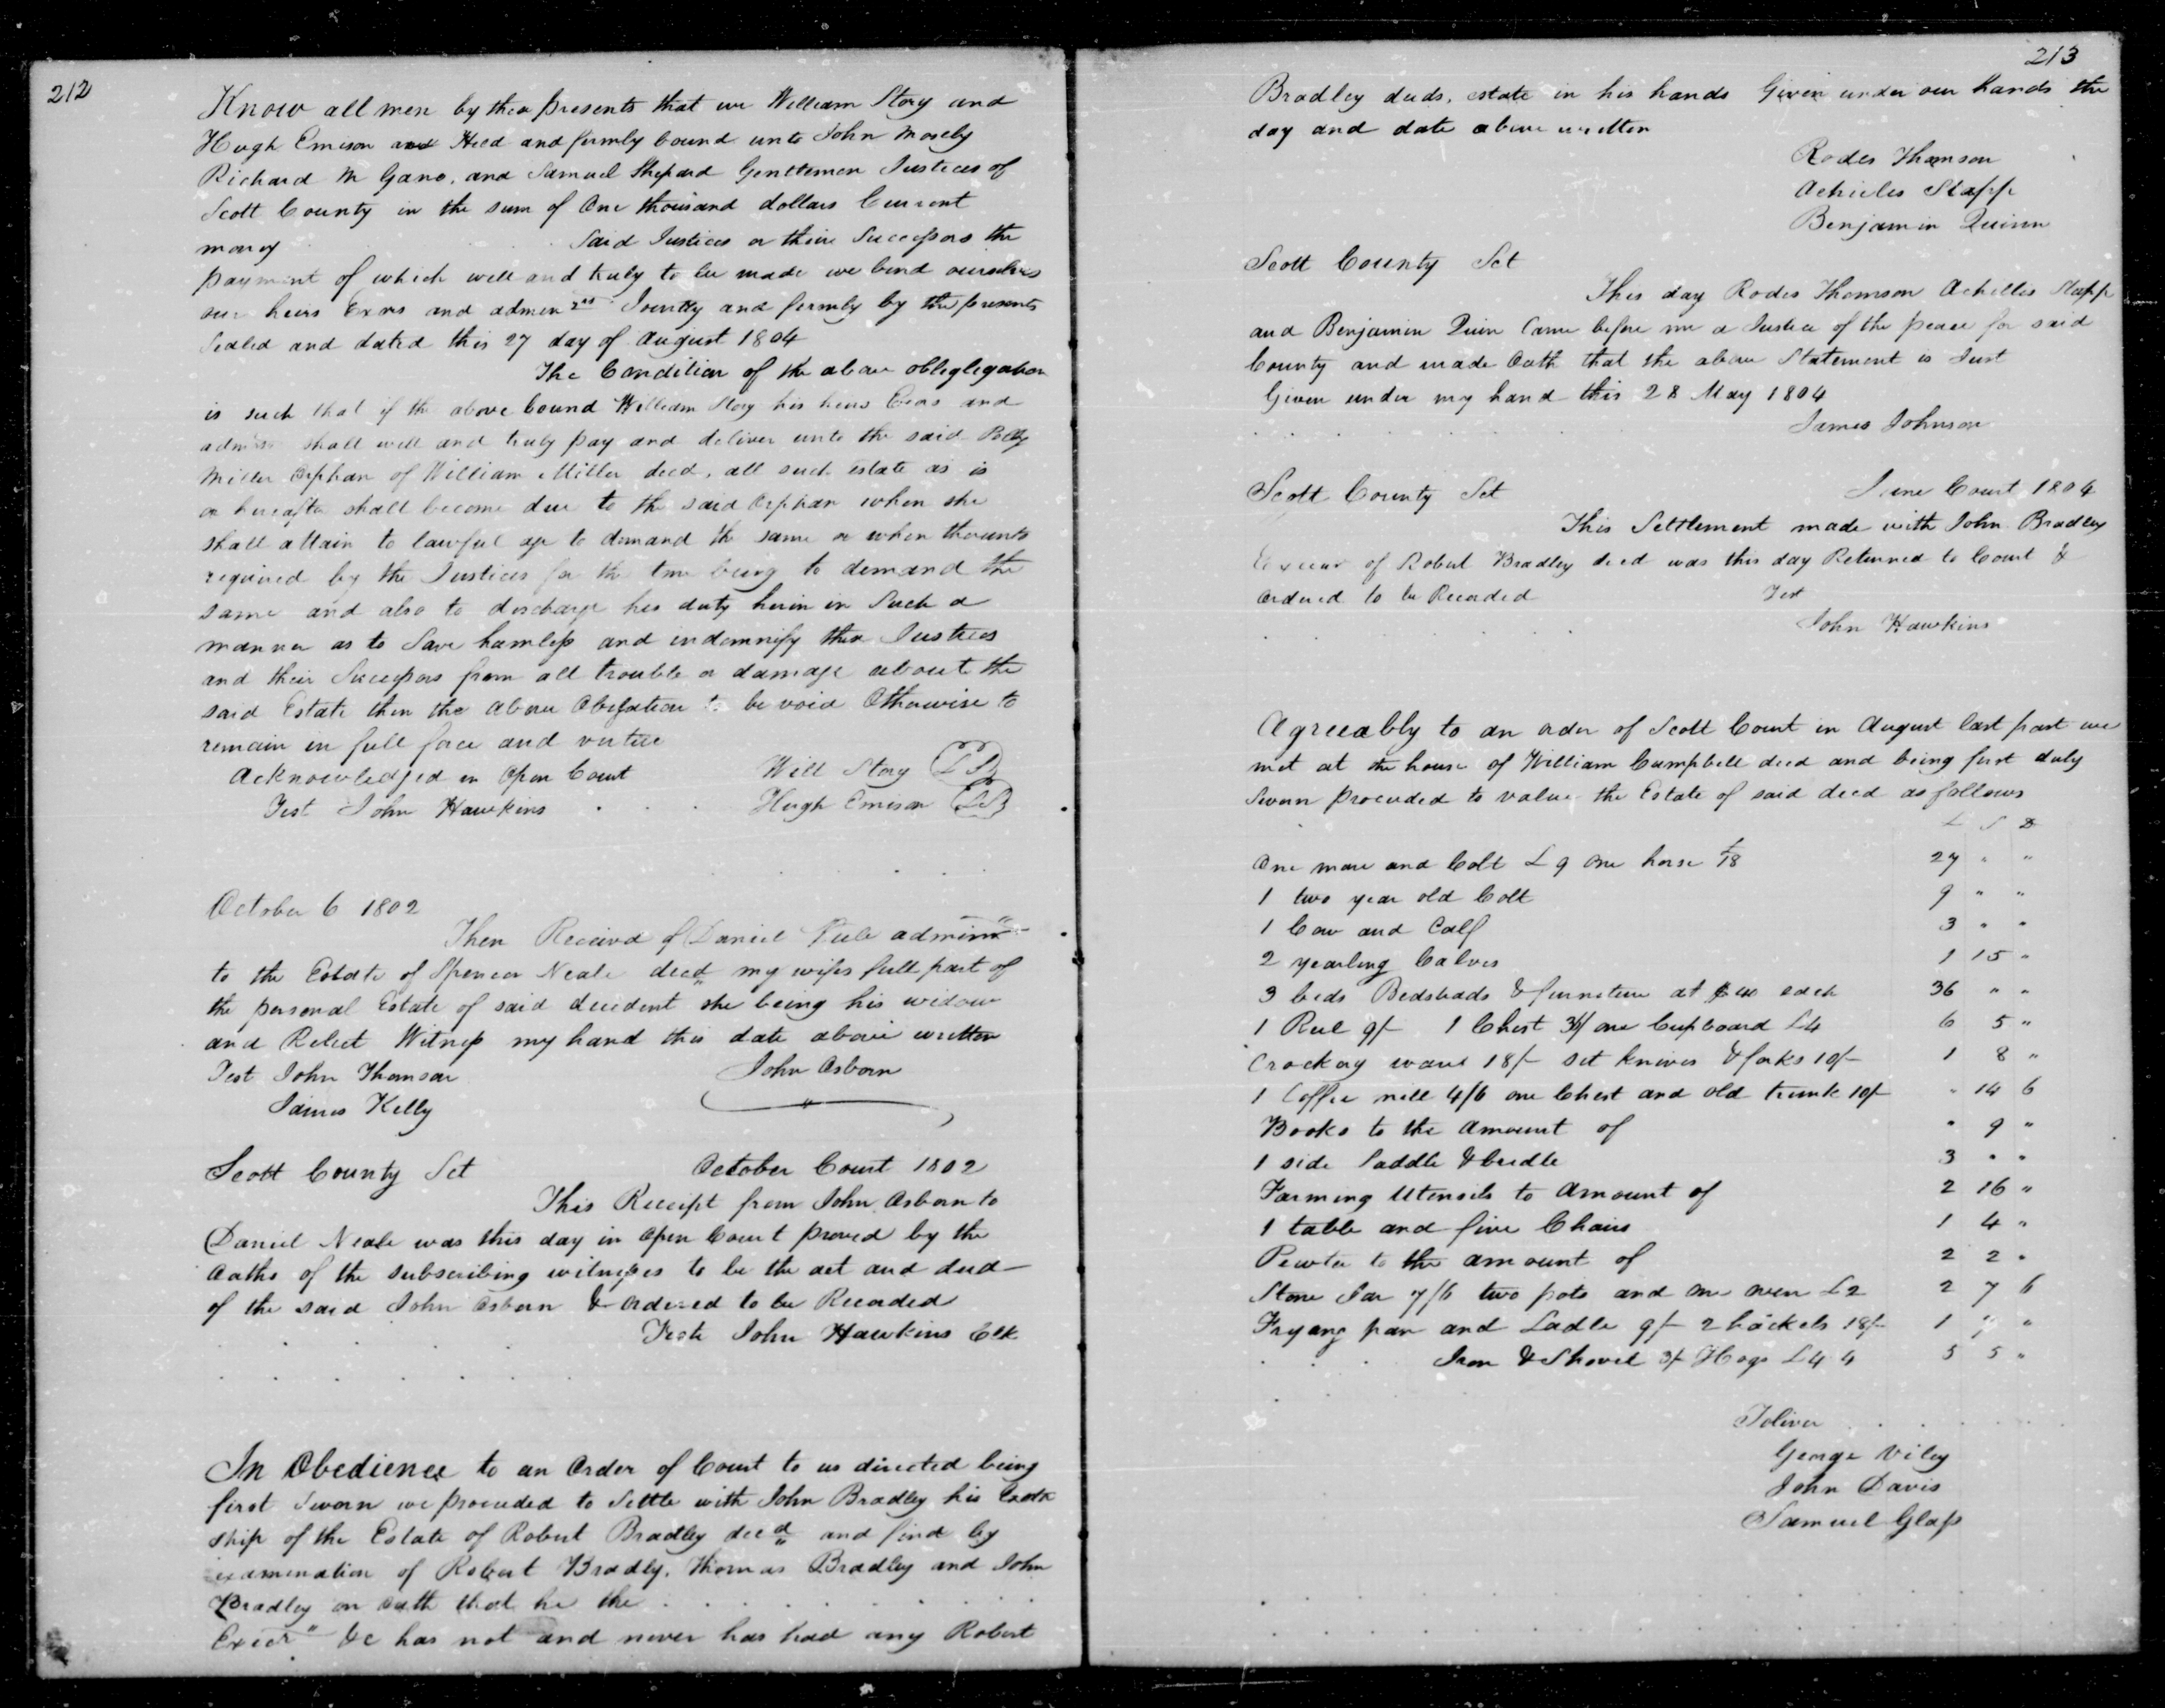 212
Know all men by thes presents that we William Story and
Hugh Emison and Held and firmly bound unto John Mosely
Richard M Gano, and Samuel Shepard Gentlemen Justices of
Scott County in the sum of One thousand dollars Current
money said Justices or their Successors the
payment of which well and truly to be made we bind ourselves
our heirs Exrs and admin Jointly and firmly by the presents
Sealed and dated this 27 day of August 1804
The Condition of the above obligligation
is such that if the above bound William Story his heirs Exrs and
admrs shall well and truly pay and deliver unto the said Polly
Miller Orphan of William Miller decd, all such estate as is
or hereafter shall become due to the said Orphan when she
shall attain to lawful age to demand the same or when thereunto
required by the Justices for the time being to demand the
same and also to discharge his duty herin in Such a
manner as to Save hamless and indemnify then Justices
and their Successors from all trouble or damage about the
said Estate then the above Obligation to be void Otherwise to
remain in full force and virtue
Acknowledged in Open Court Will Story LS
Test John Hawkins Hugh Emison LS
October 6 1802
Then Receivd of Daniel admin
to the Estate of Spencer Neale decd my wifes full part of
the personal Estate of said decident she being his widow
and Relect Witness my hand this date above written
Test John Thomson John Osborn
James Kelly
Scott County Sct October Court 1802
This Receipt from John Osborn to
Daniel Neale was this day in Open Court proved by the
Oaths of the subscribing witnesses to be the act and deed
of the said John Osborn & Ordered to be Recorded
Teste John Hawkins Clk
In Obedience to an Order of Court to us directed being
first Sworn we proceeded to Settle with John Bradley his Exctr
ship of the Estate of Robert Bradley decd and find by
examination of Robert Bradly, Thomas Bradley and John
Bradley on Oath that he the
Execr &c has not and never has had any Robert
213
Bradley deeds, estate in his hands Given under our hands the
day and date above written
Rodes Thomson
Achieles Stapp
Benjamin Quinn
Scott County Sct
This day Rodes Thomson Achilles Stapp
and Benjamin Quin Came before me a Justice of the peace for said
County and made Oath that the above Statement is Just
Given under my hand this 28 May 1804
James Johnson
Scott County Sct June Court 1804
This Settlement made with John Bradley
of Robert Bradley decd was this day Returned to Court &
Ordered to be Recorded Test
John Hawkins
Agreeably to an order of Scott Court in August last past we
met at the house of William Campbell decd and being first duly
Sworn proceeded to value the Estate of said decd as follows
L S D
One mare and Colt L 9 one horse £18 27 " "
1 two year old Colt 9 " "
1 Cow and Calf 3 " "
2 yearling Calves 1 15 "
3 beds Bedsteads & furneture at each 36 " "
1 Reel 9/- 1 Chest 36/ one Cupboard L4 6 5 "
Crockery ware 18/- set knives & forks 10/- 1 8 "
1 Coffee mill 4/6 one Chest and old trunk 10/- " 14 6
Books to the Amount of " 9 "
1 side Saddle & bridle 3 " "
Farming Utensils to Amount of 2 16 "
1 table and five Chairs 1 4 "
Pewter to the amount of 2 2 "
Stone Jar 7/6 two pots and one oven L2 2 7 6
Fryang pan and Ladle 9/- 2 hackels 18/- 1 7 "
Iron & Shovel 3/- Hogs L4 4 5 5 "
Toliver
George Viley
John Davis
Samuel Glass